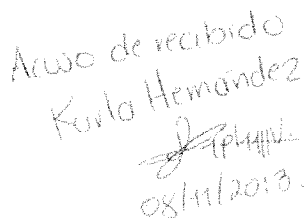 Acuso de recibido
Karla Hernández
08/11/2013.